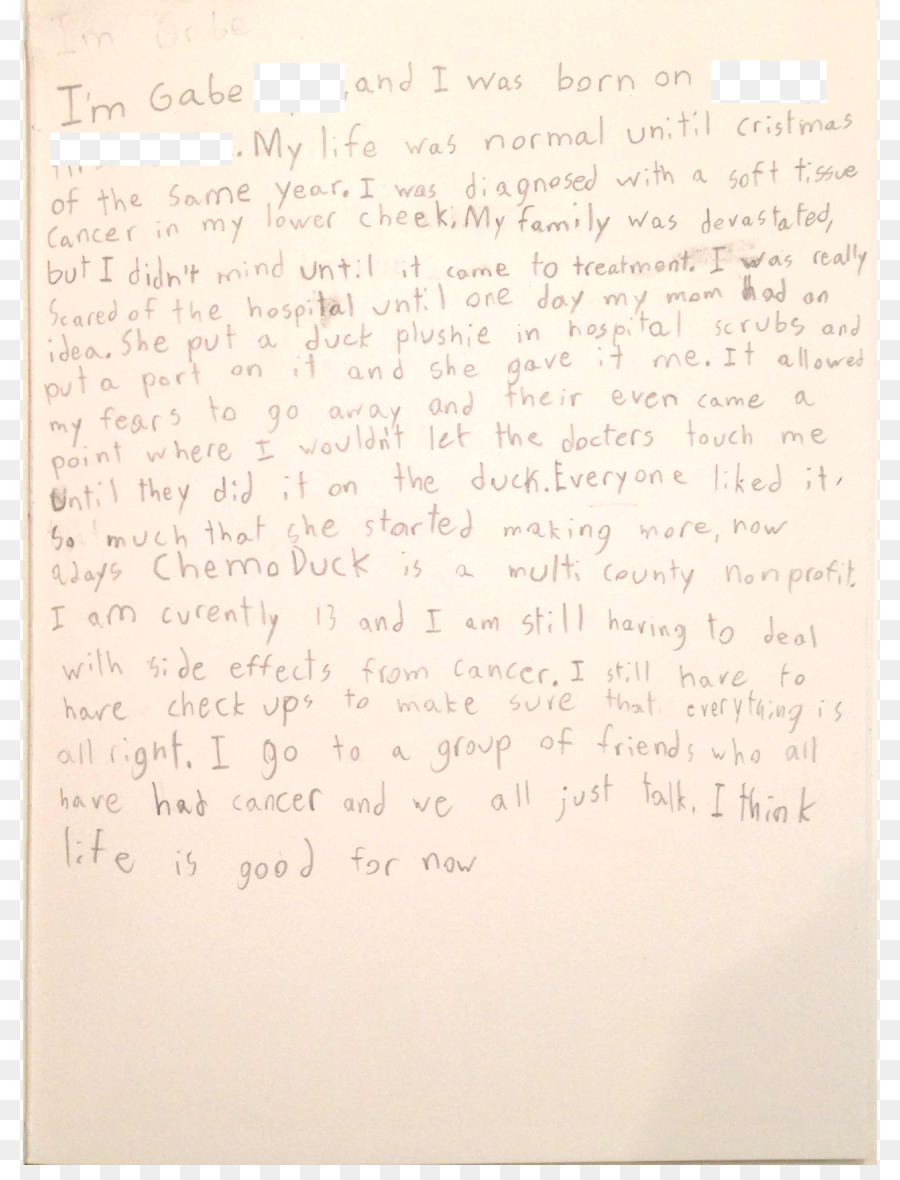 Im Grbe
I'm Gabe , and I was born on
. My life was normal unitil cristmas
of the same year. I was diagnosed with a soft tissue
cancer in my lower cheek. My family was devastated,
but I didn't mind until it came to treatment. I was really
Scared of the hospital until one day my mom had an
idea. She put a duck plushie in hospital scrubs and
put a port on it and she gave it me. It allowed
my fears to go away and their even came a
point where I wouldn't let the docters touch me
Until they did it on the duck. Everyone liked it,
So much that she started making more, now
adays Chemo Duck is a multi county nonprofit.
I am curently 13 and I am still having to deal
with side effects from cancer. I still have to
have check ups to make sure that everything is
all right. I go to a group of friends who all
have had cancer and we all just talk. I think
life is good for now